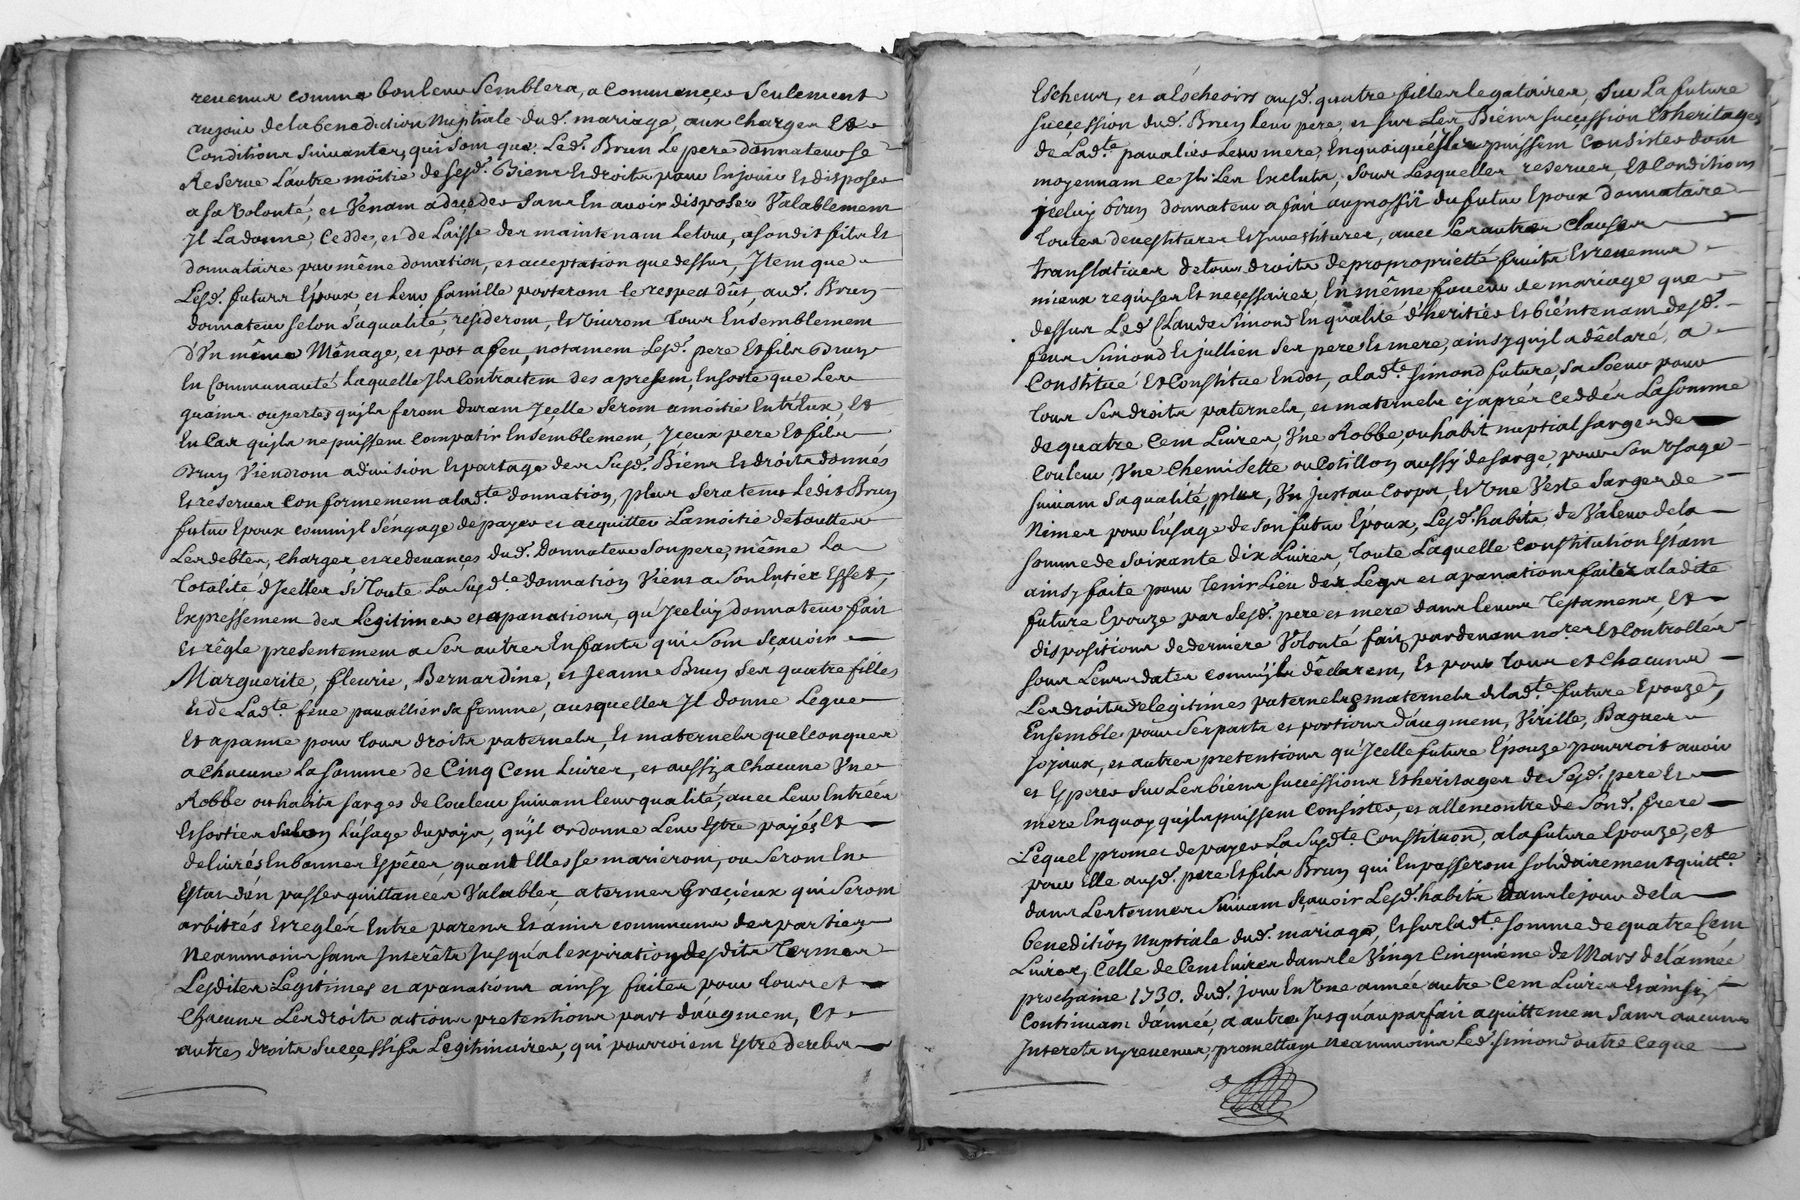 revenus comme bon leur Semblera, a Commençer Seulement
au jour de la benediction Nuptiale dud.t mariage, aux charges Et
Conditions Suivantes, qui Sont que Led.t Brun Le pere donnateur se
Reserve L'autre moitié de Sesd.ts Biens Et droits pour En jouir Et disposer
a sa Volonté, et Venant a deçeder Sans En avoir disposer Valablement
Jl La donne, Cedde, et de Laisse des maintenant Le tout, a sondit fils Et
donnataire par même donnation, et acceptation que dessus, Jtem que
Lesd.ts futurs Epoux, et Leur famille porteront le respect dût, aud.t Brun
donnateur selon Sa qualité, resideront, Et Vivront tous Ensemblement
d'Un même Mênage, et pot a feu, notament Lesd.ts pere Et fils Brun
En Communauté, Laquelle Jls Contractent des apresent, Ensorte que Les
guains ou pertes qu'jls feront durant Jçelle Seront a moitié Entr'Eux, Et
En Cas qu'jls ne puissent compatir Ensemblement, Jceux pere Et fils
Brun Viendront a division Et partage des Susd.ts Biens Et droits donnés
Et reserves Conformement a lad.te donnation, plus Sera tenus Ledit Brun
futur Epoux comm'jl S'engage de payer et acquitter La moitié de toutes
Les debtes, charges et redevançes dud.t Donnateur Son pere, même la
Totalité d'Jcelles Si Toute La Susd.te donnation Vient a Son Entier Effet,
Expressement des Legitimes et apanations, qu'Jceluy donnateur fait
Et rêgle presentement a Ses autres Enfants qui Sont Sçavoir
Marguerite, fleurie, Bernardine, et Jeanne Brun Ses quatre filles
Et de Lad.te feue pavallier Sa femme, ausquelles Jl donne Legue
Et apanne pour tous droits paternels, Et maternels quelconques
a chacune La Somme de Cinq Cent Livres, et aussi a chacune Une
Robbe ou habits sarges de Couleur Suivant leur qualité, avec Leur Entrées
Et Sorties Selon L'usage du pays, qu'jl ordonne Leur Estre payés Et
delivrés En bonnes Espêces, quand Elles se marieront, ou Seront En
Estat d'en passer quittances Valables, a termes Graçieux qui Seront
arbitrés Et reglés Entre parens Et amis communs des parties
Neanmoins Sans Jnterêts Jusqu'a l'expiration desdits Termes
Lesdites Legitimes et apanations ainsy faites pour tous et
Chacuns Les droits actions pretentions part d'augment, Et
autres droits Successifs Legitimaires, qui pourroient Estre desia
Escheus, et a Escheoirs ausd.ts quatre filles legataires, Sur La future
Succession dud.t Brun leur pere, et Sur Les Biens Succession Et heritages
de Lad.te pavalier Leur mere, En quoi qu'Jls puissent Consister dont
moyennant ce Jl Les Exclut, Sous Lesquelles reserves, Et Conditions
jceluy Brun donnateur a fait au proffit du futur Epoux donnataire
Toutes devestitures Et Jnvestitures, avec Les autres Clauses
translatives de tous droits de propropriette fruits Et revenus
mieux requises Et necessaires, En même faveur de mariage que
dessus Led.t Claude Simond En qualité d'heritier Et bientenant desd.ts
feus Simond Et jullien Ses pere Et mere, ainsy qu'jl a déclaré, a
Constitué Et Constitue En dot, a lad.te Simond future, Sa Soeur pour
tous Ses droits paternels, et maternels cy après ceddés La Somme
de quatre Cent Livres, Une Robbe, ou habit nuptial sarge de
Couleur, Une Chemisette ou Cotillon aussy de Sarge, pour Son Usage
Suivant Sa qualité, plus, Un justau Corps, Et Une Veste Sarge de
Nimes pour l'usage de Son futur Epoux, Lesd.ts habits, de Valeur de la
Somme de Soixante dix Livres, Toute Laquelle Constitution Estant
ainsy faite pour Tenir Lieu des Legs et apanations faites a ladite
future Epouze par Sesd.ts pere et mere dans leurs Testamens, Et
dispositions de derniere Volonté fait pardevant no.res Et Controllés
Sous Leurs dates comm'jls déclarent, Et pour tous et chacuns
Les droits de legitimes paternels, maternels de lad.te future Epouze,
Ensemble pour Ses parts et portions d'augment, Virille, Bagues
Jojaux, et autres pretentions qu'Jcelle future Epouze pourroit avoir
et Esperer Sur Les biens Successions Et heritages de Sesd.ts pere Et
mere En quoy qu'jls puissent Consister, et allencontre de Sond.t frere
Lequel promet de payer La Susd.te Constituon, a la future Epouze, et
pour Elle ausd.ts pere Et fils Brun qui En passeront Solidairement quitt.ce
dans Les termes Suivant Sçavoir Lesd.ts habits dans le jour de la
benedition Nuptiale dud.t mariage, Et Sur lad.te Somme de quatre Cent
Livres, Celle de Cent livres dans le Vingt Cinquiéme de Mars de l'année
prochaine 1730. dud.t jour En Une année autre Cent Livres Et ainsy
Continuant d'année, a autre Jusqu'au parfait aquittement Sans aucuns
Jnterets ny revenus, promettant neanmoins Led.t Simond outre ce que